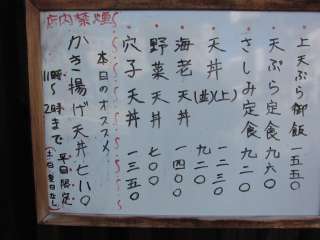 上天ぷら御飯 一五五〇
天ぷら定食 九六〇
さしみ定食 九二〇
天丼(上) 一二三〇
(並) 九二〇
海老天丼 一四〇〇
野菜天丼 七〇〇
穴子天丼 一三五〇
本日のオススメ
かき揚げ天丼 七八〇
11時〜2時まで 平日限定
(土日祝日なし)
店内禁煙